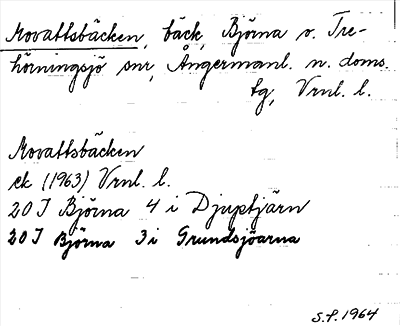 Movattsbäcken, bäck, Björna o. Tre-
hörningsjö snr, Ångermanl. n. doms.
tg, Vrnl. l.
Movattsbäcken
ek (1963) Vrnl. l.
20 I Björna 4 i Djuptjärn
20 I Björna 3 i Grundsjöarna
S.P. 1964